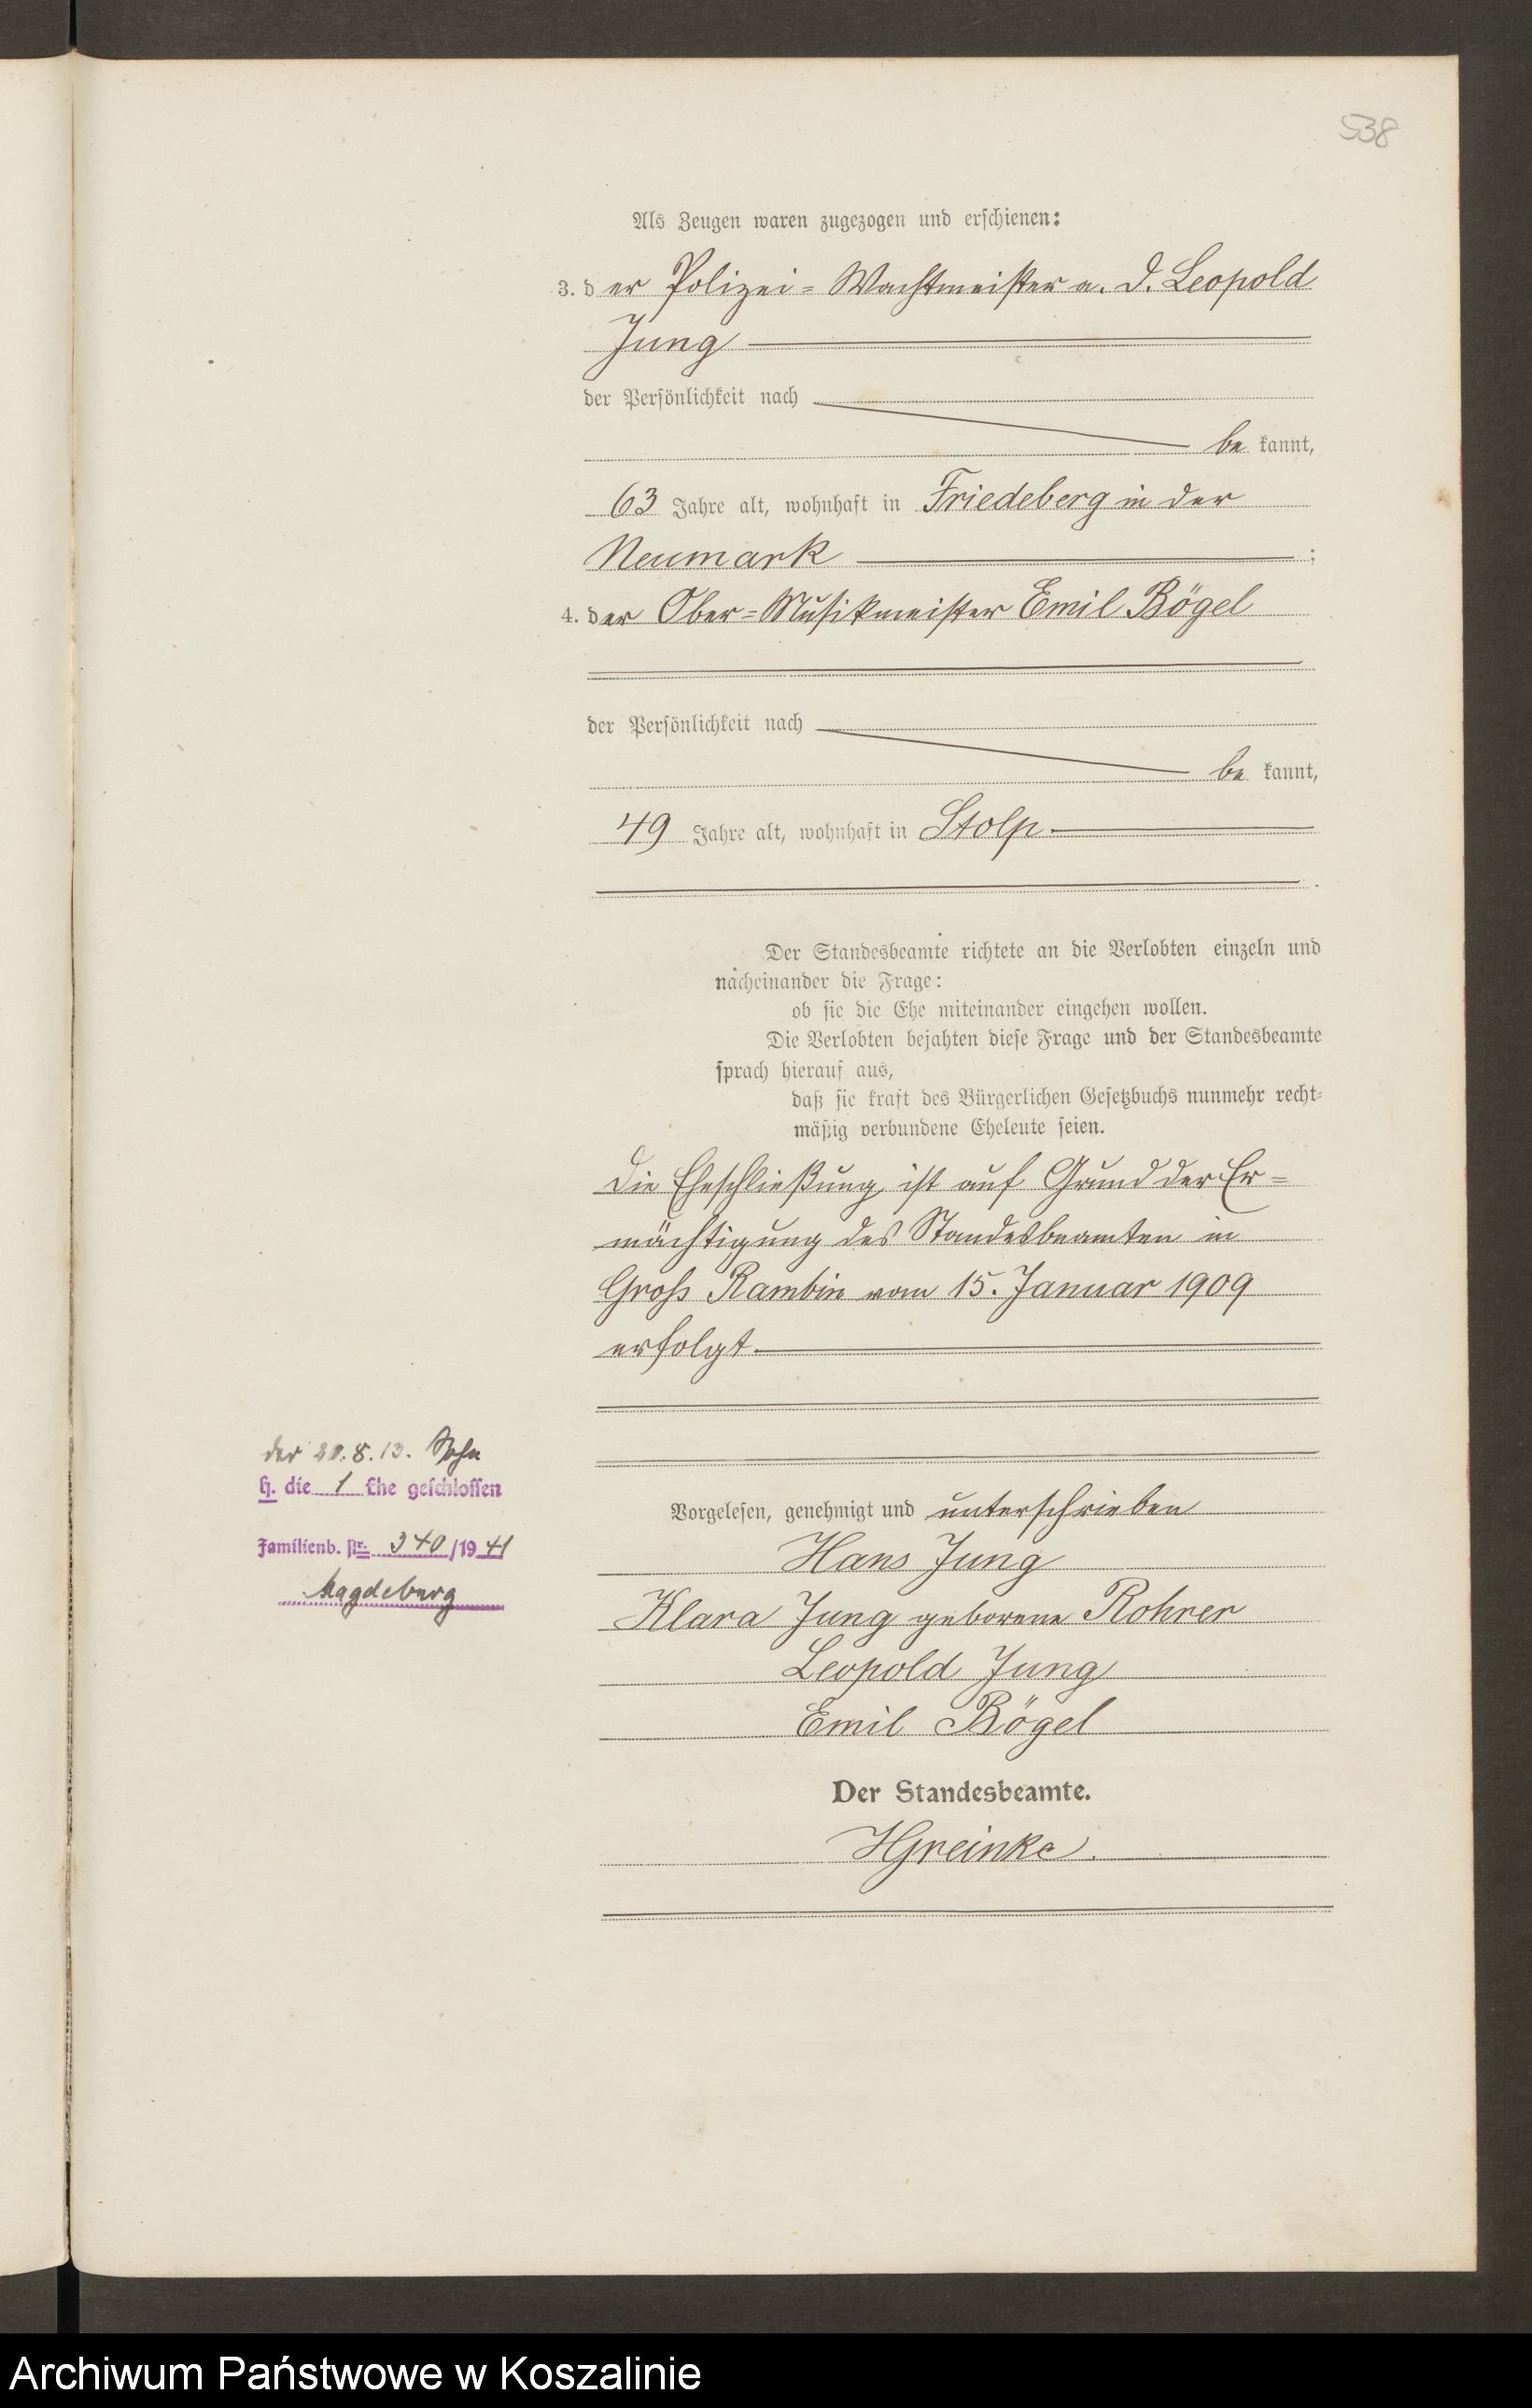 538
Als Zeugen waren zugezogen und erschienen:
3. der Polizei=Wachtmeister a. D. Leopold
Jung
der Persönlichkeit nach
be kannt,
63 Jahre alt, wohnhaft in Friedeberg in der
Neumark ;
4. der Ober=Musikmeister Emil Bögel
der Persönlichkeit nach
be kannt,
49 Jahre alt, wohnhaft in Stolp
.
Der Standesbeamte richtete an die Verlobten einzeln und
nacheinander die Frage:
ob sie die Ehe miteinander eingehen wollen.
Die Verlobten bejahten diese Frage und der Standesbeamte
sprach hierauf aus,
daß sie kraft des Bürgerlichen Gesetzbuchs nunmehr recht-
mäßig verbundene Eheleute seien.
Die Eheschließung ist auf Grund der Er=
mächtigung des Standesbeamten in
Gross Rambin vom 15. Januar 1909
erfolgt.
der 20.8.13. Sohn
h. die 1 Ehe geschlossen
Familienb. Nr. 340/1941
Magdeburg
Vorgelesen, genehmigt und unterschrieben
Hans Jung
Klara Jung geborene Rohrer
Leopold Jung
Emil Bögel
Der Standesbeamte.
HGreinke.
Archiwum Państwowe w Koszalinie